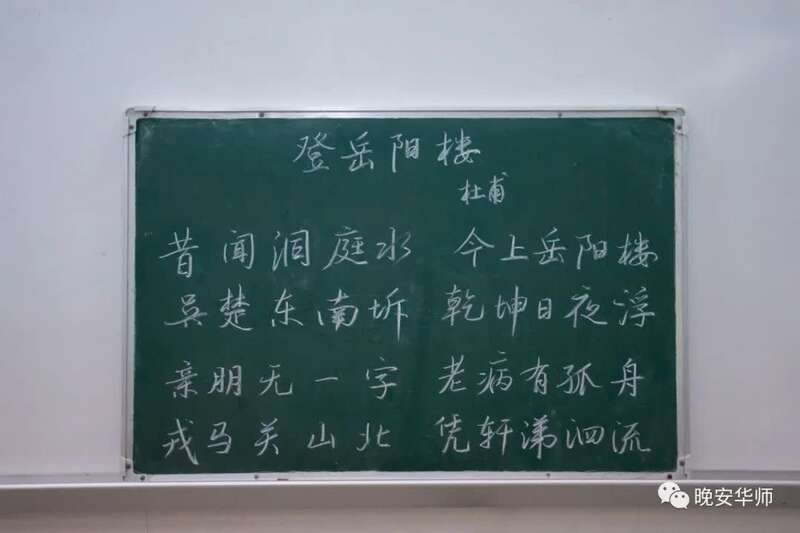 登岳阳楼
杜甫
昔闻洞庭水 今上岳阳楼
吴楚东南坼 乾坤日夜浮
亲朋无一字 老病有孤舟
戎马关山北 凭轩涕泗流
晚安华师